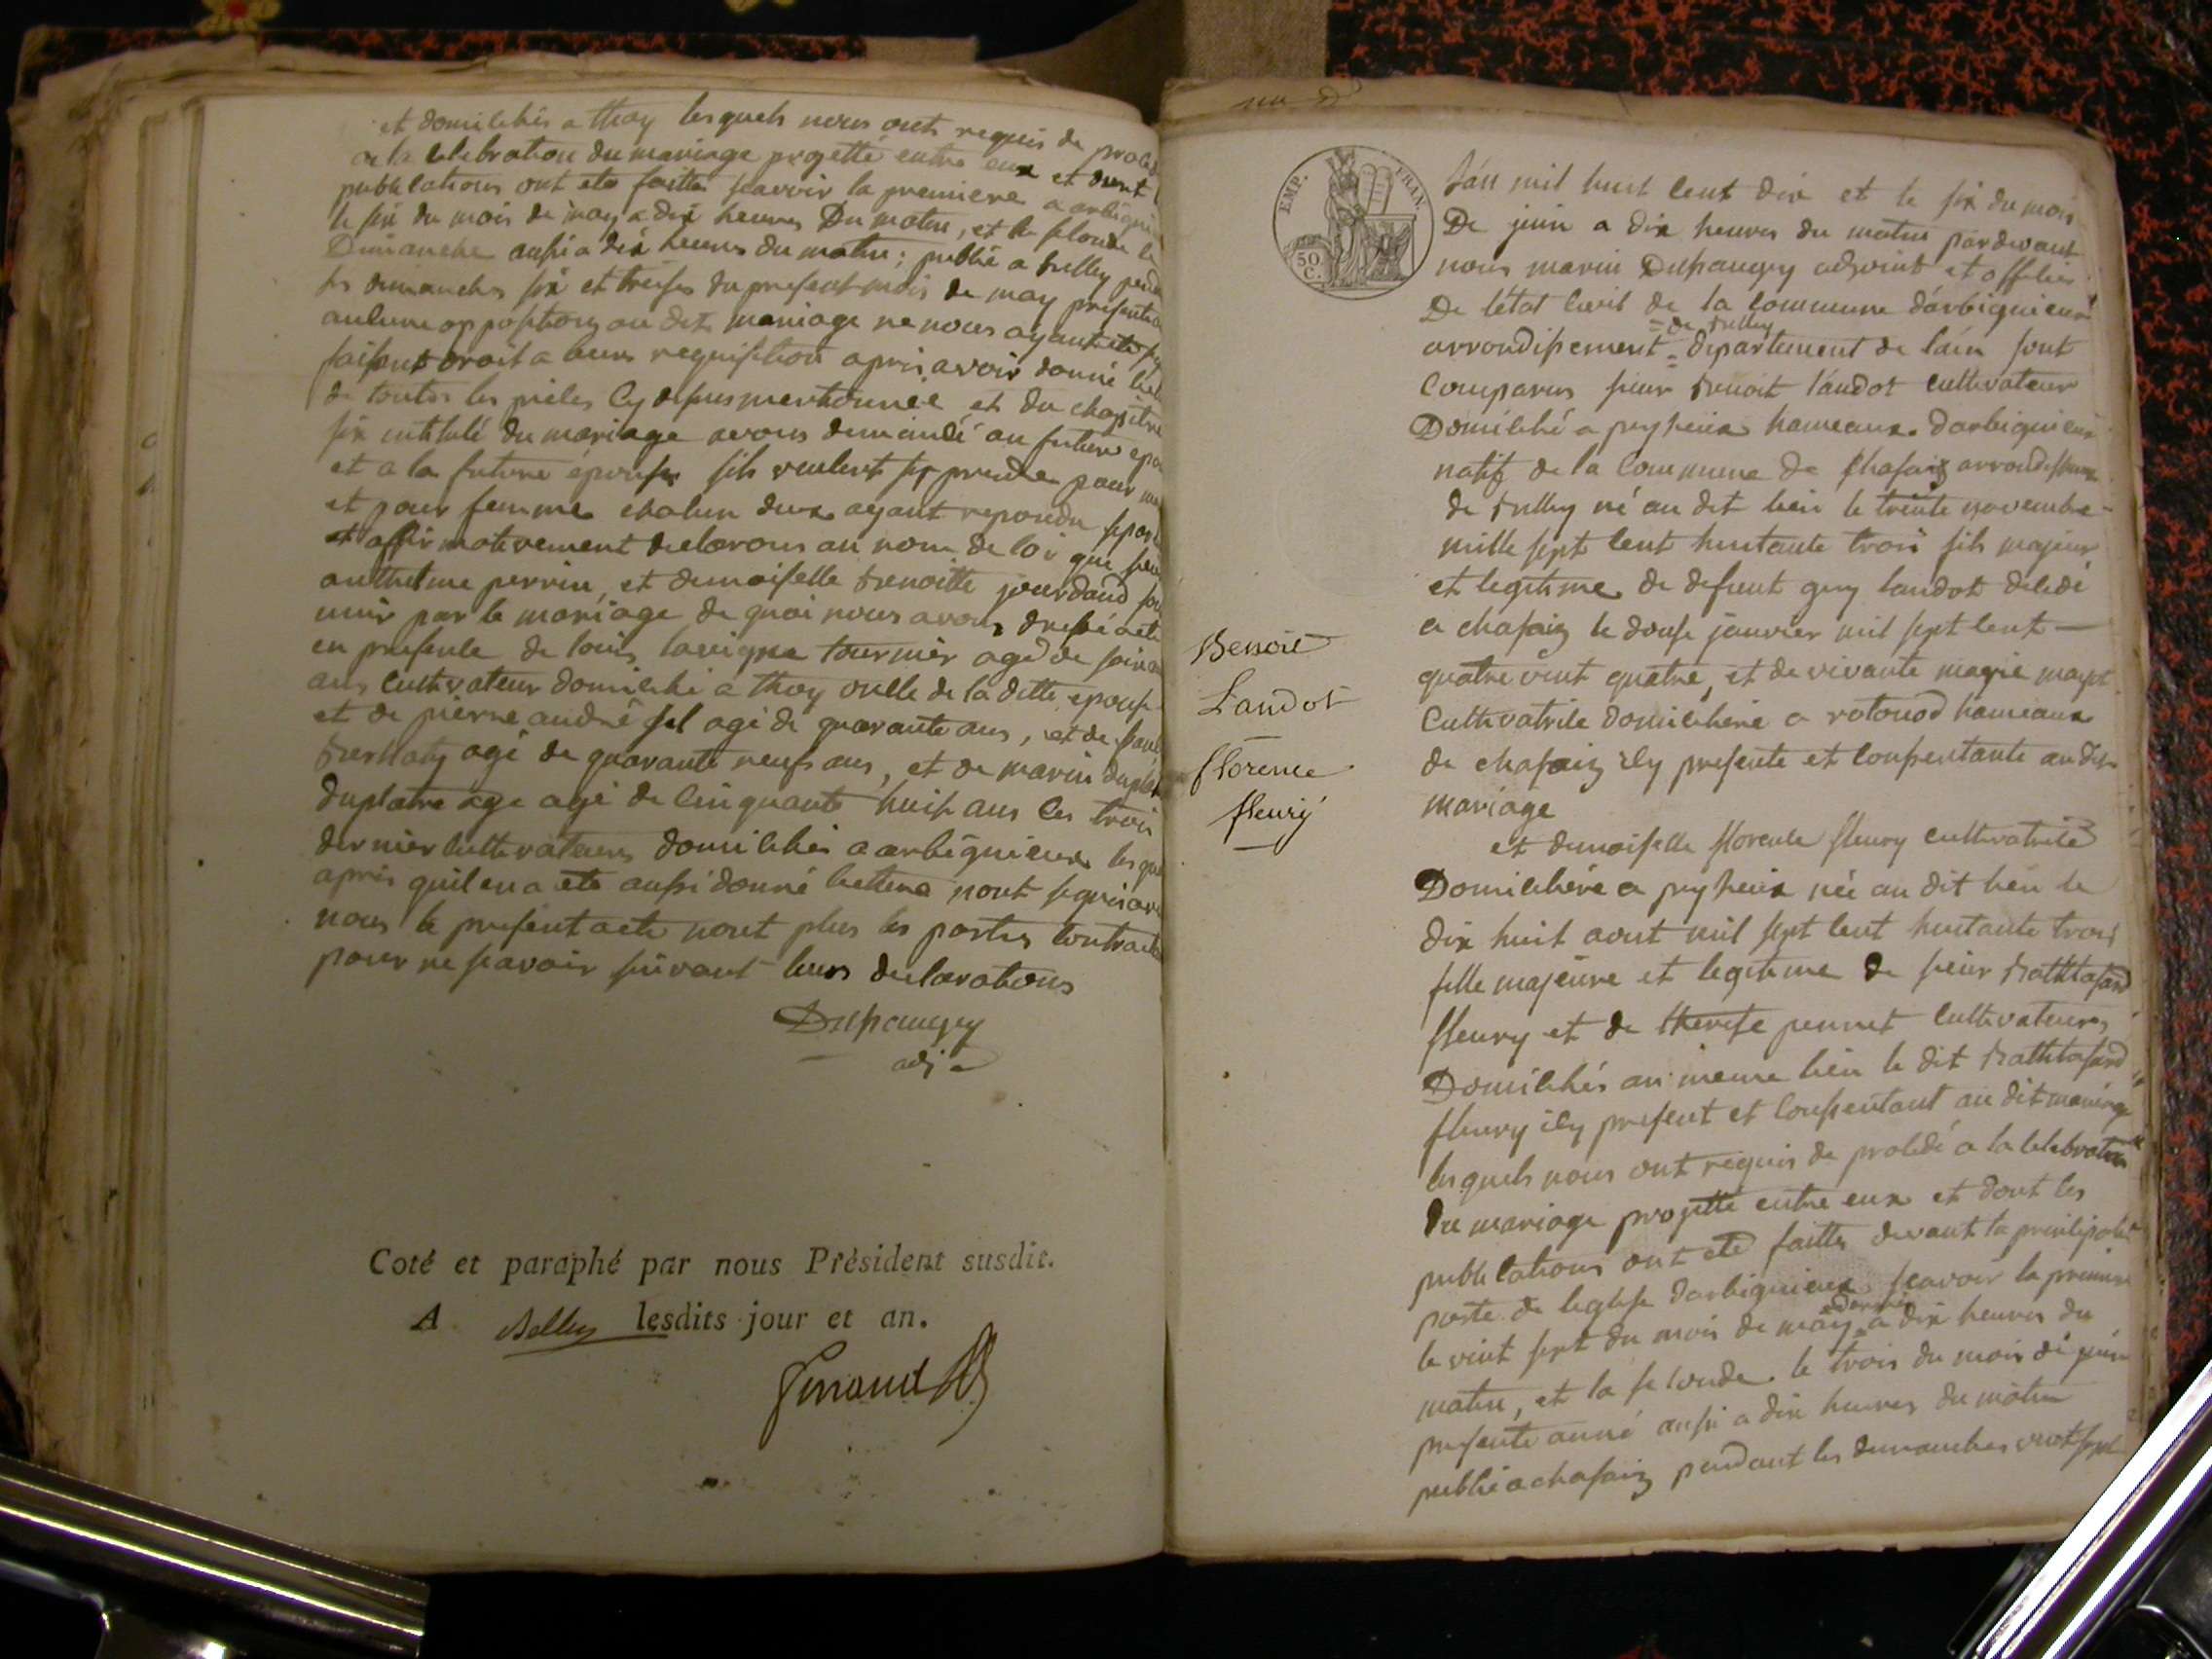 et domilihés a thoy lesquels nous onts requis de proléd
a la lélébration du mariage projetté entre eux et dont
publilations ont été faittes scavoir la premiere a arbignieu
le six du mois de may a dix heures Du matin, et la selonde le
Dimanche aussi a dix heures du matin; publié a Belley pend
les dimanches six et treise du present mois de may presente a
aulune opposition au dit mariage ne nous ayant été
faisant droit a leurs requisition apris avoir donné lec
de toutes les pièles Cy dessus mentionnée et du chapitre
six intitulé du mariage avons demandé au future epou
et a la future épouse sils veulent se prendre pour ma
et pour femme chalun deux ayant repondu separé
et affirmativement declarons au nom de loi que sieu
anthelme perrin et demoiselle Benoitte jourdand so
unis par le mariage de quoi nous avons dressé acte
en presenle de louis lavigne tournier agé de soixan
ans Cultivateur domilihé a thoy onlle de la ditte epouse
et de pierre andré sel agé de quarante ans, et de paul
agé de quarante neufs ans, et de marin duplat
duplatre age agé de Cinquante huit ans les trois
dernier Cultivateurs domilihés a arbignieux les que
aprés quil en a été aussi donné lecture nont signé av
nous le present acte nont plus les parties Contracte
pour ne scavoir suivant leurs declarations
Dupaugey
adj
Coté et paraphé par nous Président susdit.
A Belley lesdits jour et an.
EMP. FRAN.
50 C.
L'án mil huit Cent dix et le six du mois
De juin a dix heures du matin pardevant
nous marin Dupaugey adjoint et offilier
De létat Civil de la Commune dárbignieux
= de Belley
arrondissement = département de láin sont
Comparus sieur Benoit landot Cultivateur
Domilihé a peyzieux hameaux d'arbignieux
natif de la Commune de Chasaiz arrondissem
de Belley né au dit lieu le trente novembre
mille sept Cent huitante trois fils majeur
et legitime de defunt guy landot délédé
a chasaiz le douse janvier mil sept lent —
quatre vint quatre, et de vivante marie
Cultivatrile domilihérie a rotonod hameaux
de chasaiz ily presente et Consentante au dit
mariage
Benoit
Landot
florence
fleury
et demoiselle florenle fleury Cultivatrile
Domilihére a peyzieux née au dit lieu le
dix huit aout mil sept lent huitante trois
fille majeure et legitime de sieur Balthasard
fleury et de therese Cultivateurs
Domilihés au meme lieu le dit Balthasard
fleury ily present et Consentant au dit mariage
lesquels nous ont requis de prolédé a la lélébration
du mariage projetté entre eux et dont les
publilations ont été faittes devant la prinlipale
porte de leglise darbignieux scavoir la premiere
dernier
le vint sept du mois de may a dix heures du
matin, et la selonde le trois du mois de juin
presente anné aussi a dix heures du matin
publié a chasaiz pendant les dimanches vint sept